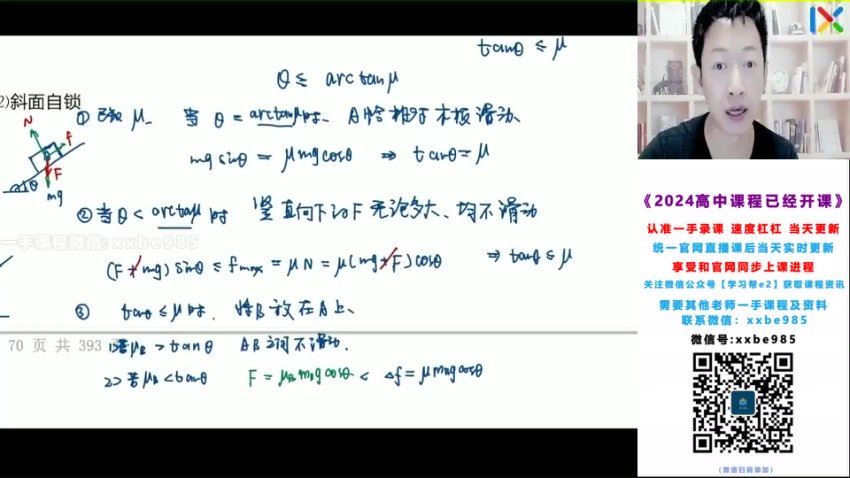 tanθ ≤ μ
θ ≤ arctanμ
2)斜面自锁
① 已知 μ. 当 θ = arctanμ时、A恰相对木板滑动、
N f F mg θ
mg sinθ = μmg cosθ ⇒ tanθ = μ
②当θ < arctanμ 时 竖直向下的F 无论多大、均不滑动
一手课程微信: xxbe985
(F + mg) sinθ ≤ fmax = μN = μ(mg+F)cosθ ⇒ tanθ ≤ μ
③ tanθ ≤ μ时. 将B放在A上、
70 页 共 393
1>若μB > tanθ AB之间不滑动.
2>若μB < tanθ F = μB mB g cosθ < Δf = μ mB g cosθ
《2024高中课程已经开课》
认准一手录课 速度杠杠 当天更新
统一官网直播课后当天实时更新
享受和官网同步上课进程
关注微信公众号【学习帮e2】获取课程资讯
需要其他老师一手课程及资料
联系微信：xxbe985
微信号:xxbe985
(微信扫码添加)